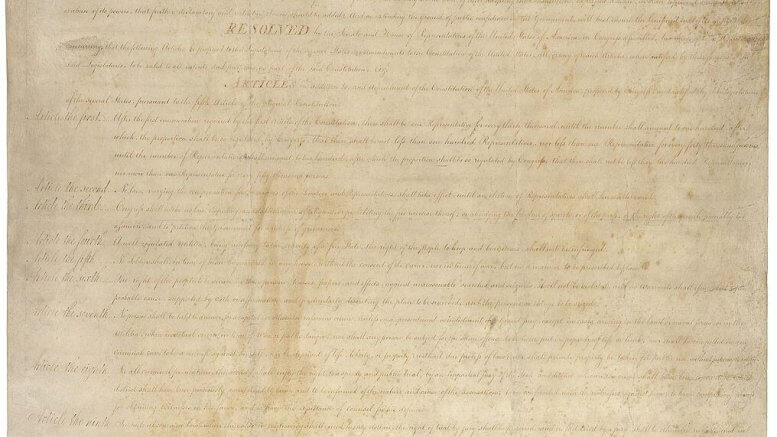 RESOLVED by the Senate and House of Representatives of the United States of America in Congress assembled, two
that the following Articles be proposed to the Legislatures of the several States, as amendments to the Constitution of the United States, all, or any of which Articles, when ratified by
said Legislatures, to be valid to all intents and purposes, as part of the said Constitution, viz.
ARTICLES in addition to, and amendment of the Constitution of the United States of America, proposed by Congress, and ratified by the Legislatures
of the several States, pursuant to the fifth Article of the original Constitution.
Article the first... After the first enumeration required by the first Article of the Constitution, there shall be one Representative for every thirty thousand, until the number shall amount to one hundred, after
which, the proportion shall be so regulated by Congress, that there shall be not less than one hundred Representatives, nor less than one Representative for every forty thousand persons,
until the number of Representatives shall amount to two hundred, after which the proportion shall be so regulated by Congress, that there shall not be less than two hundred Representatives,
nor more than one Representative for every fifty thousand persons.
Article the second... No law, varying the compensation for the services of the Senators and Representatives, shall take effect, until an election of Representatives shall have intervened.
Article the third... Congress shall make no law respecting an establishment of religion, or prohibiting the free exercise thereof; or abridging the freedom of speech, or of the press; or the right of the people peaceably to
Government for a redress of grievances.
Article the fourth... A well regulated Militia, being necessary to the security of a free State, the right of the people to keep and bear Arms, shall not be infringed.
Article the fifth... No Soldier shall, in time of peace be quartered in any house, without the consent of the Owner, nor in time of war, but in a manner to be prescribed by law.
Article the sixth... The right of the people to be secure in their persons, houses, papers, and effects, against unreasonable searches and seizures, shall not be violated, and no Warrants shall issue, but upon
probable cause, supported by Oath or affirmation, and particularly describing the place to be searched, and the persons or things to be seized.
Article the seventh... No person shall be held to answer for a capital, or otherwise infamous crime, unless on a presentment or indictment of a Grand Jury, except in cases arising in the land or naval forces, or in the
Militia, when in actual service in time of War or public danger; nor shall any person be subject for the same offence to be twice put in jeopardy of life or limb, nor shall be compelled in any
criminal case to be a witness against himself, nor be deprived of life, liberty, or property, without due process of law; nor shall private property be taken for public use, without just compensation.
Article the eighth... In all criminal prosecutions, the accused shall enjoy the right to a speedy and public trial, by an impartial jury of the State and district wherein the crime shall have been committed, which
district shall have been previously ascertained by law, and to be informed of the nature and cause of the accusation; to be confronted with the witnesses against him; to have compulsory process
for obtaining witnesses in his favor, and to have the assistance of counsel for his defence.
Article the ninth... In suits at common law, where the value in controversy shall exceed twenty dollars, the right of trial by jury shall be preserved